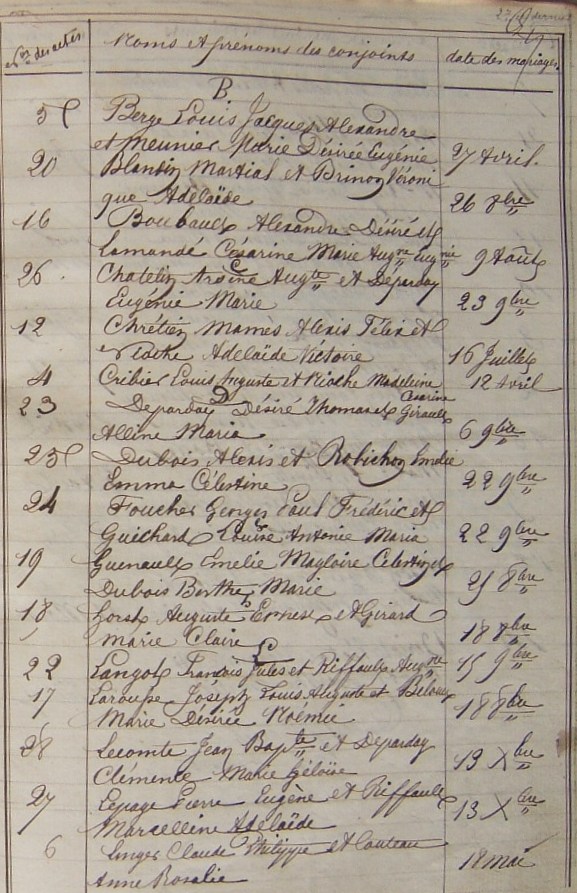 Nos des actes
Noms et prénoms des conjoints
date des mariages.
B
5 Berge Louis Jacques Alexandre
et Meunier Marie Désirée Eugénie 27 Avril.
20 Blandin Martial et Brinon Véroni
que Adelaïde 26 8bre
16 Boubault Alexandre Désiré et
Lamandé Césarine Marie Augne Eugénie 9 Août
C
26 Chatelin Arsène Augte et Deparday
Eugénie Marie 23 9bre
12 Chrétien Mamès Alexis Félix et
Rioche Adelaïde Victoire 16 Juillet
4 Crébier Louis Auguste et Rioche Madeleine 12 Avril
D
23 Deparday Désiré Thomas et Girault Césarine
Alline Maria 6 9bre
25 Dubois Alexis et Robichon Emélie
Emma Célestine 22 9bre
24 Foucher Georges Paul Frédéric et
Guichard Louise Antonie Maria 22 9bre
G
19 Guenault Emelie Magloire Célestin et
Dubois Berthe Marie 25 8bre
18 Horst Auguste Ernest et Girard
Marie Claire 18 8bre
L
22 Langot François Jules et Riffault Augne 15 9bre
17 Laroupe Joseph Louis Auguste et Beloux
Marie Désirée Noémie 18 8bre
28 Lecomte Jean Bapte et Deparday
Clémente Marie Héloïse 13 Xbre
27 Lepage Pierre Eugène et Riffault
Marcelline Adelaïde 13 Xbre
6 Linger Claude Philippe et Couteau
Anne Rosalie 18 mai